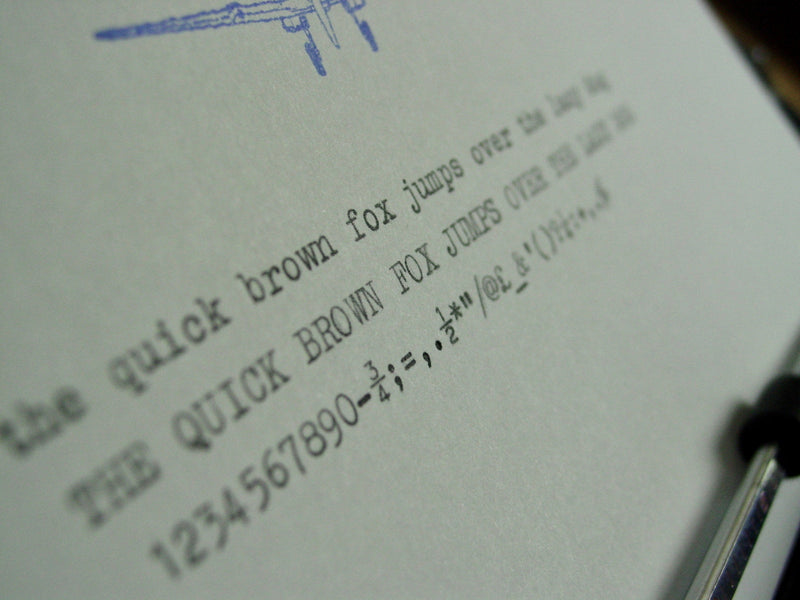 the quick brown fox jumps over the lazy dog
THE QUICK BROWN FOX JUMPS OVER THE LAZY DOG
1234567890-¾;=,.½*"/@£_&'()